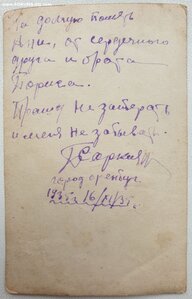 На долгую память
Ане, от сердечного
друга и брата
Бориса.
Прошу не затерать
и меня не забывать.
город Оренбург
16/III/35 г.